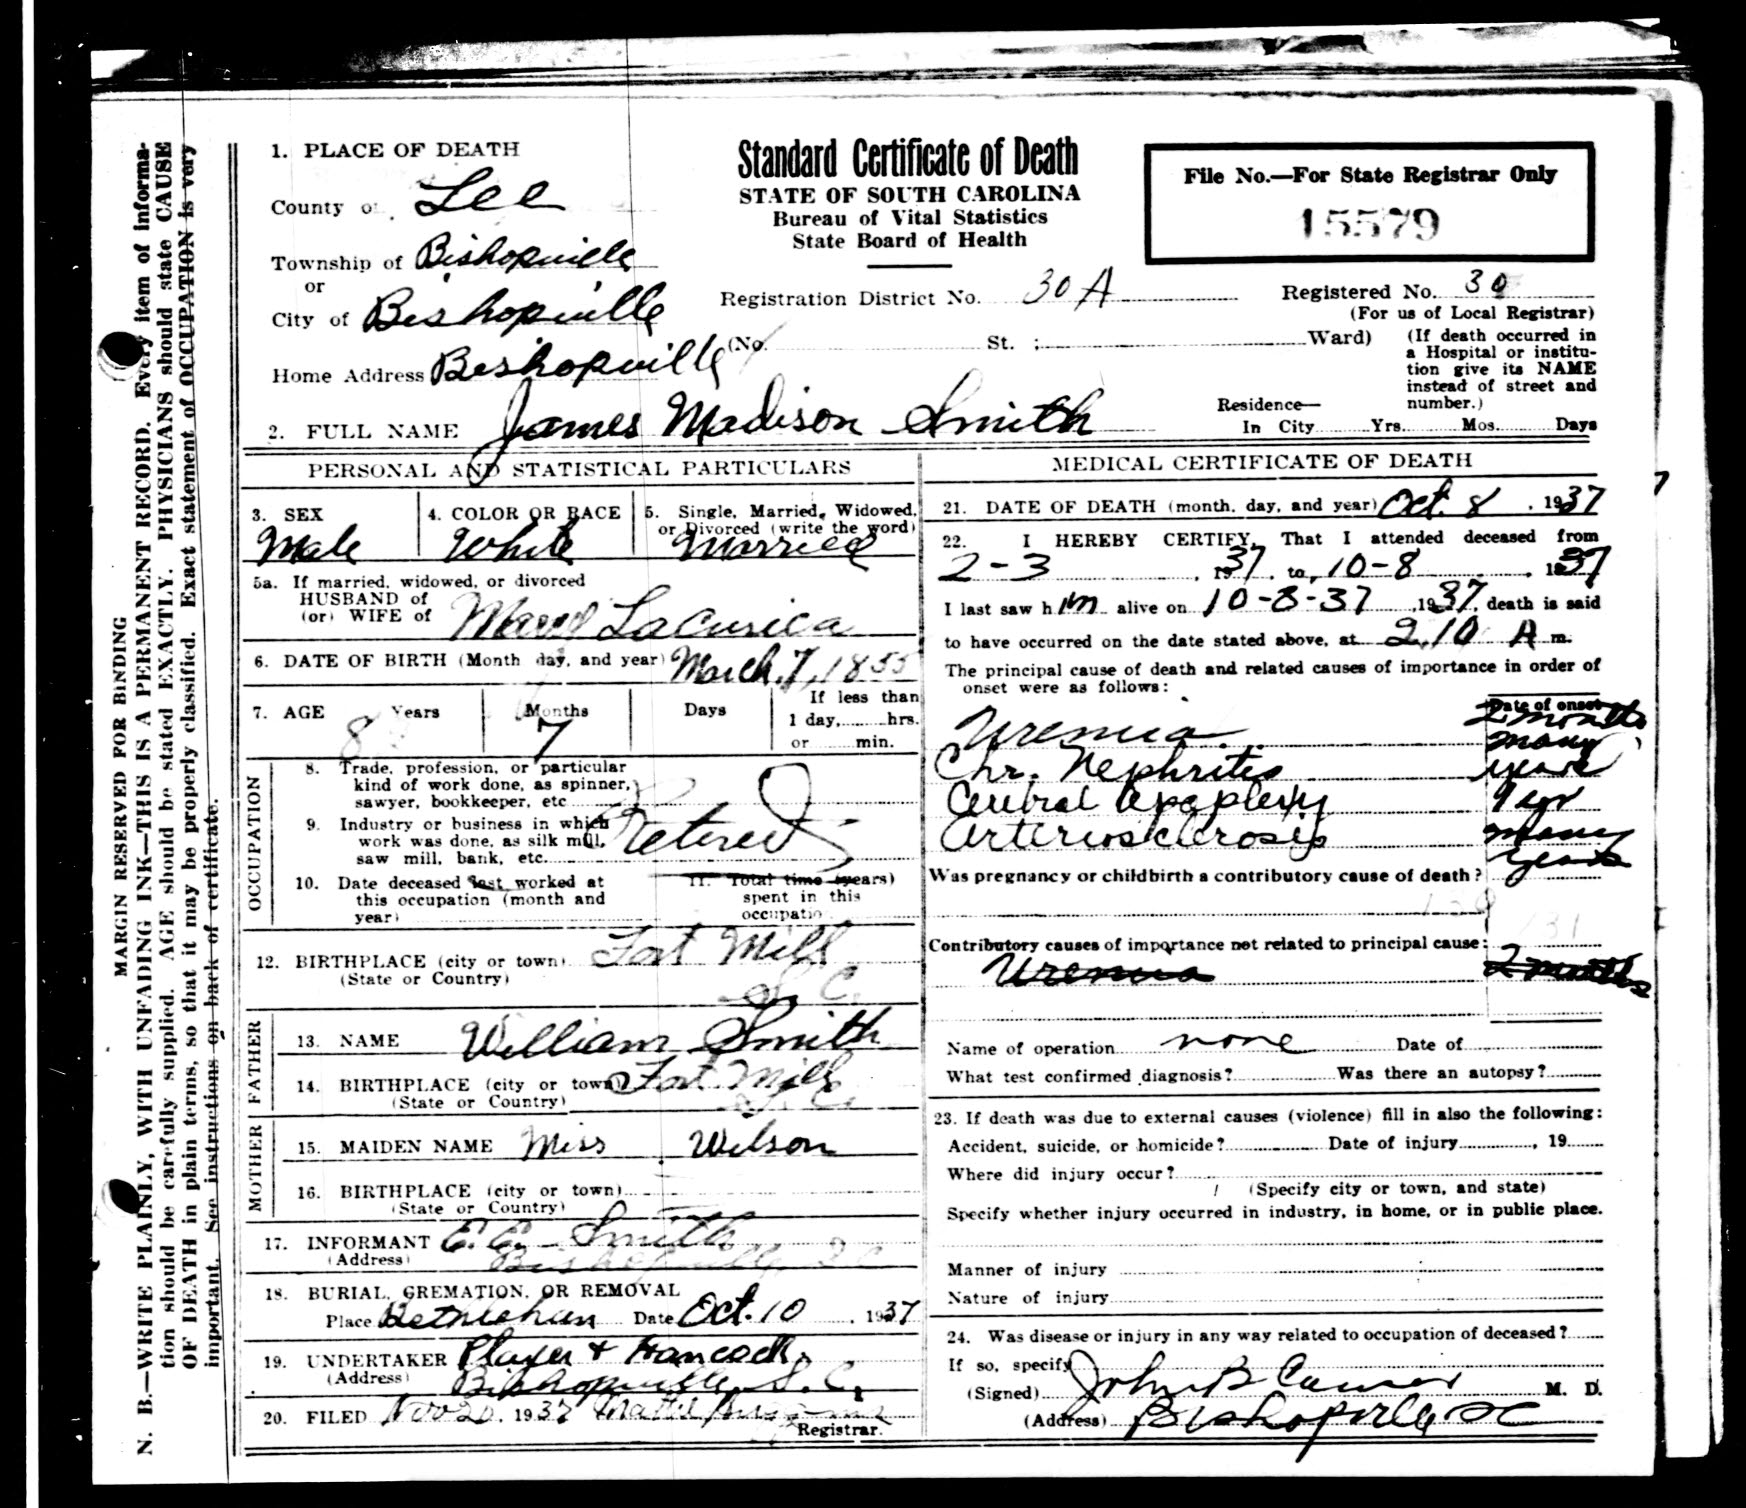 MARGIN RESERVED FOR BINDING
N. B.—WRITE PLAINLY, WITH UNFADING INK—THIS IS A PERMANENT RECORD. Every item of informa-
tion should be carefully supplied. AGE should be stated EXACTLY. PHYSICIANS should state CAUSE
OF DEATH in plain terms, so that it may be properly classified. Exact statement of OCCUPATION is very
important. See instructions on back of certificate.
Standard Certificate of Death
STATE OF SOUTH CAROLINA
Bureau of Vital Statistics
State Board of Health
File No.—For State Registrar Only
15579
1. PLACE OF DEATH
County of Lee
Township of Bishopville
or
City of Bishopville
Home Address Bishopville
Registration District No. 30 A
Registered No. 30
(For us of Local Registrar)
(No. St. ; Ward)
(If death occurred in
a Hospital or institu-
tion give its NAME
instead of street and
number.)
Residence—
In City Yrs. Mos. Days
2. FULL NAME James Madison Smith
PERSONAL AND STATISTICAL PARTICULARS
3. SEX
Male
4. COLOR OR RACE
White
5. Single, Married, Widowed,
or Divorced (write the word)
Married
5a. If married, widowed, or divorced
HUSBAND of
(or) WIFE of
6. DATE OF BIRTH (Month day, and year) March 7, 1855
7. AGE Years Months Days
8 7
If less than
1 day, hrs.
or min.
OCCUPATION
8. Trade, profession, or particular
kind of work done, as spinner,
sawyer, bookkeeper, etc
9. Industry or business in which
work was done, as silk mill,
saw mill, bank, etc.
Retired
10. Date deceased last worked at
this occupation (month and
year)
11. Total time (years)
spent in this
occupatio
12. BIRTHPLACE (city or town) Fort Mill
(State or Country) S. C.
FATHER
13. NAME William Smith
14. BIRTHPLACE (city or town) Fort Mill
(State or Country) S. C.
MOTHER
15. MAIDEN NAME Miss Wilson
16. BIRTHPLACE (city or town)
(State or Country)
17. INFORMANT E. E. Smith
(Address) Bishopville S C
18. BURIAL, CREMATION, OR REMOVAL
Place Bethlehem Date Oct. 10, 1937
19. UNDERTAKER Player + Hancock
(Address) Bishopville S. C.
20. FILED Nov 20, 1937
Registrar.
MEDICAL CERTIFICATE OF DEATH
21. DATE OF DEATH (month, day, and year) Oct. 8, 1937
22. I HEREBY CERTIFY, That I attended deceased from
2-3, 1937. to, 10-8, 1937
I last saw him alive on 10-8-37, 1937, death is said
to have occurred on the date stated above, at 2.10 A m.
The principal cause of death and related causes of importance in order of
onset were as follows:
Date of onset
Uremia 2 months
Chr. Nephritis many years
Apoplexy 1 yr
Arteriosclerosis many years
Was pregnancy or childbirth a contributory cause of death?
131
Contributory causes of importance not related to principal cause:
Uremia 2 months
Name of operation none Date of
What test confirmed diagnosis? Was there an autopsy?
23. If death was due to external causes (violence) fill in also the following:
Accident, suicide, or homicide? Date of injury , 19
Where did injury occur?
(Specify city or town, and state)
Specify whether injury occurred in industry, in home, or in public place.
Manner of injury
Nature of injury
24. Was disease or injury in any way related to occupation of deceased?
If so, specify
(Signed) John B M. D.
(Address) Bishopville SC